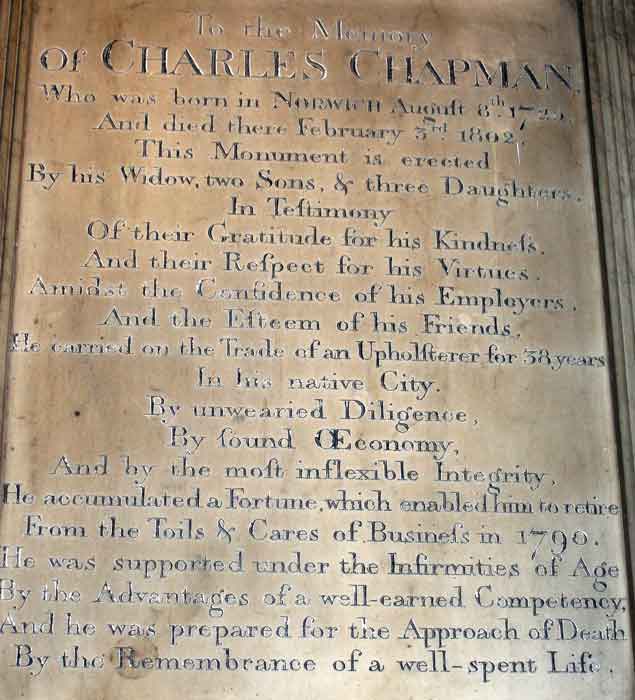 To the Memory
Of CHARLES CHAPMAN,
Who was born in NORWICH Auguſt 8th. 1729,
And died there February 3rd. 1802,
This Monument is erected
By his Widow, two Sons, & three Daughters.
In Teſtimony
Of their Gratitude for his Kindneſs,
And their Reſpect for his Virtues.
Amidst the Confidence of his Employers,
And the Eſteem of his Friends,
He carried on the Trade of an Upholſterer for 38 years
In his native City.
By unwearied Diligence,
By ſound Œconomy,
And by the moſt inflexible Integrity,
He accumulated a Fortune, which enabled him to retire
From the Toils & Cares of Buſineſs in 1790.
He was supported under the Infirmities of Age
By the Advantages of a well-earned Competency,
And he was prepared for the Approach of Death
By the Remembrance of a well-spent Life.